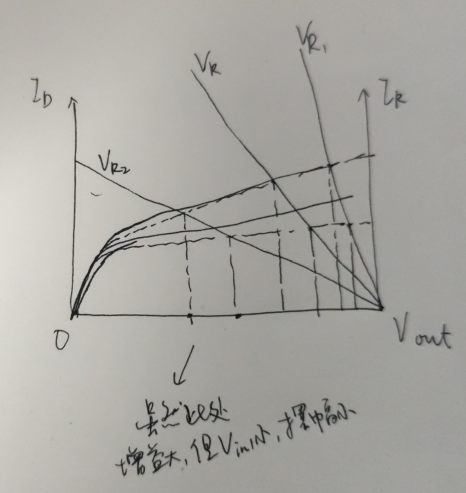 V_R
V_R1
I_D
I_R
V_R2
O
V_out
虽然此处
增益大, 但V_in小, 摆幅小